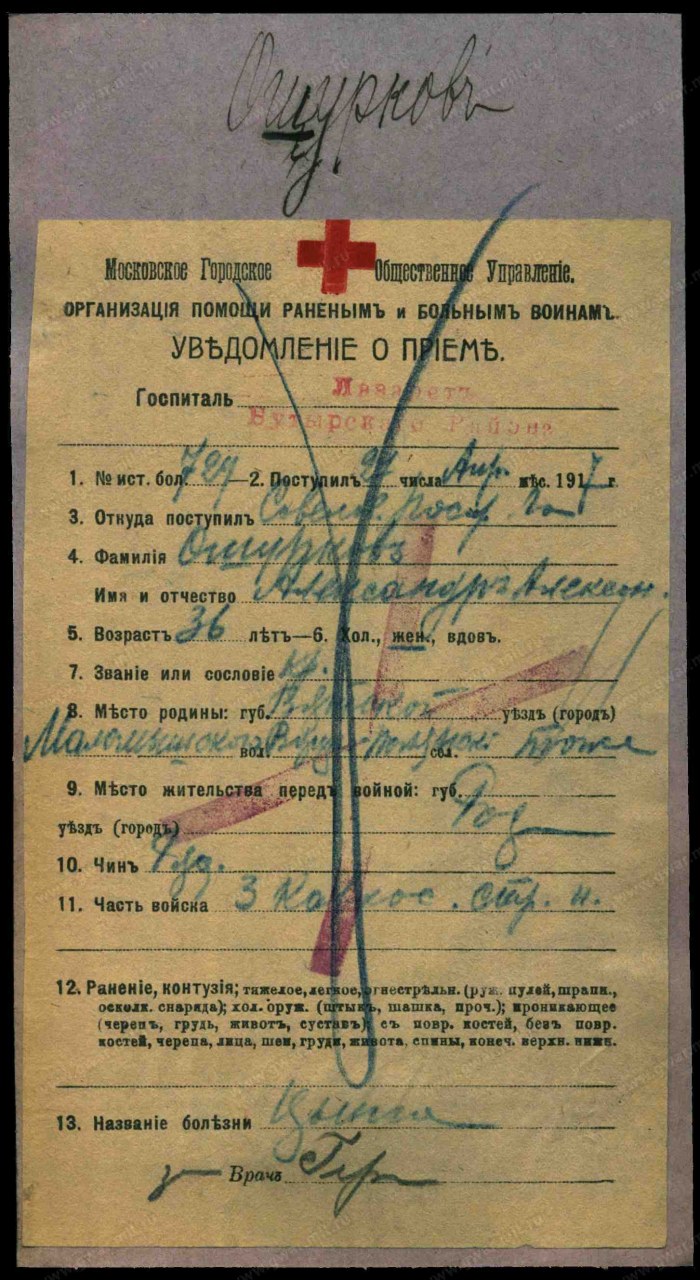 Ошурковъ
Московское Городское Общественное Управленіе.
ОРГАНИЗАЦІЯ ПОМОЩИ РАНЕНЫМЪ и БОЛЬНЫМЪ ВОИНАМЪ.
УВѢДОМЛЕНІЕ О ПРІЕМѢ.
Госпиталь Лазаретъ
Бутырскаго Района
1. № ист. бол. 729 —2. Поступилъ числа Апр. мѣс. 1917 г
3. Откуда поступилъ
4. Фамилія Ошурковъ
Имя и отчество Александръ Алексан.
5. Возрастъ 36 лѣтъ—6. Хол., жен., вдов.
7. Званіе или сословіе кр.
8. Мѣсто родины: губ. Вятской уѣздъ (городъ)
Малмыжскаго вол. сел.
9. Мѣсто жительства передъ войной: губ.
уѣздъ (городъ)
10. Чинъ Ряд.
11. Часть войска 3 Кавказ. стр. п.
12. Раненіе, контузія; тяжелое, легкое, огнестрѣльн. (руж. пулей, шрапн.,
осколк. снаряда); хол. оруж. (штыкъ, шашка, проч.); проникающее
(черепъ, грудь, животъ, суставъ); съ повр. костей, безъ повр.
костей, черепа, лица, шеи, груди, живота, спины, конеч. верхн. нижн.
13. Названіе болѣзни Цынга
Врачъ